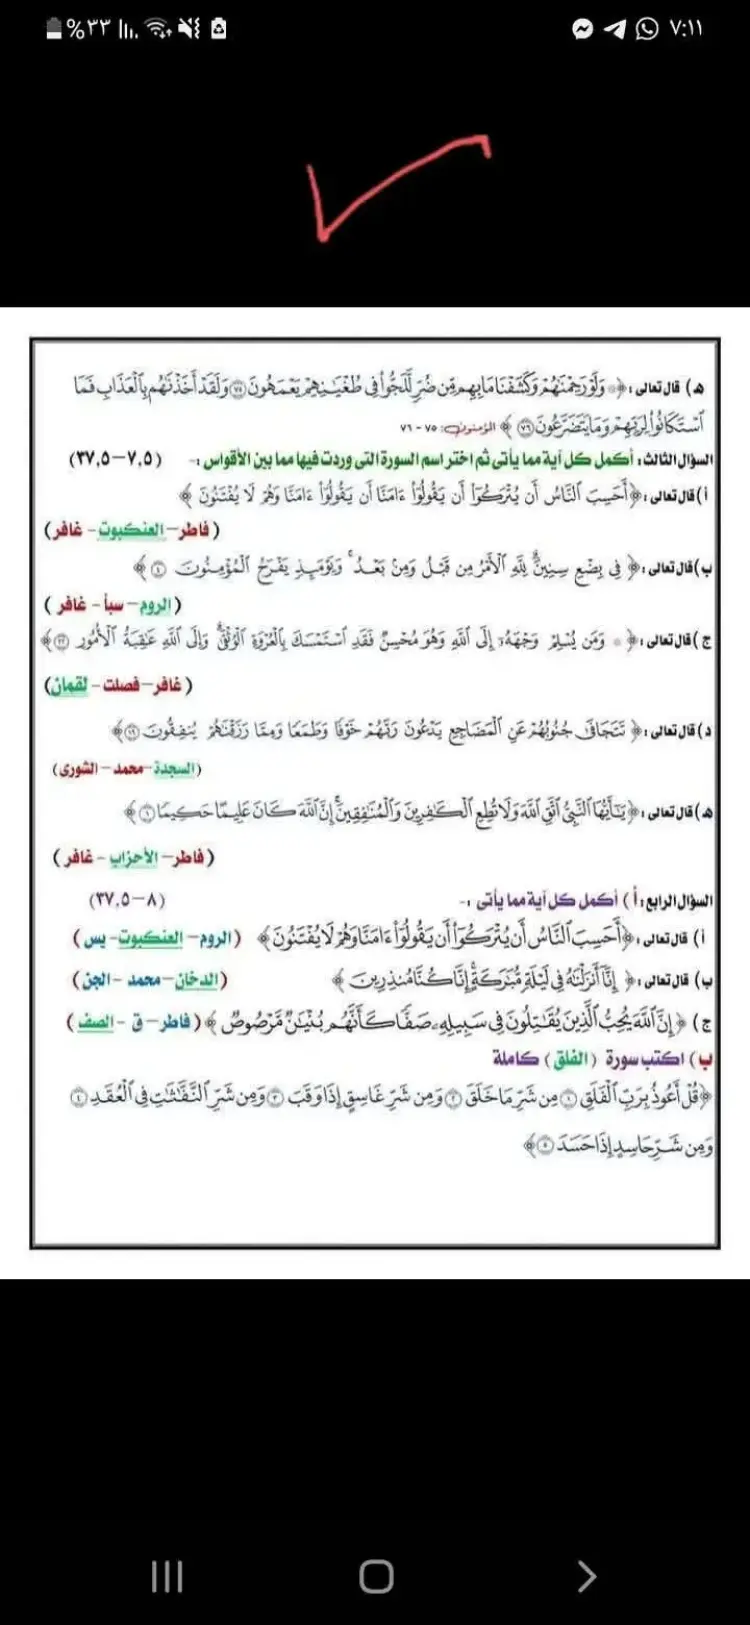 %٣٣
٧:١١
هـ) قال تعالى: ﴿۞ وَلَوْ رَحِمْنَٰهُمْ وَكَشَفْنَا مَا بِهِم مِّن ضُرٍّ لَّلَجُّوا۟ فِى طُغْيَٰنِهِمْ يَعْمَهُونَ ٧٥ وَلَقَدْ أَخَذْنَٰهُم بِٱلْعَذَابِ فَمَا
ٱسْتَكَانُوا۟ لِرَبِّهِمْ وَمَا يَتَضَرَّعُونَ ٧٦﴾ المؤمنون: ٧٥ - ٧٦
السؤال الثالث: أكمل كل آية مما يأتى ثم اختر اسم السورة التى وردت فيها مما بين الأقواس :- (٧,٥–٣٧,٥)
أ) قال تعالى: ﴿أَحَسِبَ ٱلنَّاسُ أَن يُتْرَكُوٓا۟ أَن يَقُولُوٓا۟ ءَامَنَّا أَن يَقُولُوٓا۟ ءَامَنَّا وَهُمْ لَا يُفْتَنُونَ ﴾
(فاطر– العنكبوت– غافر)
ب) قال تعالى: ﴿ فِى بِضْعِ سِنِينَ ۗ لِلَّهِ ٱلْأَمْرُ مِن قَبْلُ وَمِنۢ بَعْدُ ۚ وَيَوْمَئِذٍ يَفْرَحُ ٱلْمُؤْمِنُونَ ٤ ﴾
(الروم– سبأ– غافر )
ج) قال تعالى: ﴿ ۞ وَمَن يُسْلِمْ وَجْهَهُۥٓ إِلَى ٱللَّهِ وَهُوَ مُحْسِنٌ فَقَدِ ٱسْتَمْسَكَ بِٱلْعُرْوَةِ ٱلْوُثْقَىٰ ۗ وَإِلَى ٱللَّهِ عَٰقِبَةُ ٱلْأُمُورِ ٢٢﴾
( غافر– فصلت– لقمان)
د) قال تعالى: ﴿ تَتَجَافَىٰ جُنُوبُهُمْ عَنِ ٱلْمَضَاجِعِ يَدْعُونَ رَبَّهُمْ خَوْفًا وَطَمَعًا وَمِمَّا رَزَقْنَٰهُمْ يُنفِقُونَ ١٦﴾
(السجدة– محمد– الشورى)
هـ) قال تعالى: ﴿يَٰٓأَيُّهَا ٱلنَّبِىُّ ٱتَّقِ ٱللَّهَ وَلَا تُطِعِ ٱلْكَٰفِرِينَ وَٱلْمُنَٰفِقِينَ ۗ إِنَّ ٱللَّهَ كَانَ عَلِيمًا حَكِيمًا ١﴾
(فاطر– الأحزاب– غافر )
السؤال الرابع: أ) أكمل كل آية مما يأتى :- (٨–٣٧,٥)
أ) قال تعالى: ﴿أَحَسِبَ ٱلنَّاسُ أَن يُتْرَكُوٓا۟ أَن يَقُولُوٓا۟ ءَامَنَّا وَهُمْ لَا يُفْتَنُونَ﴾ (الروم– العنكبوت– يس)
ب) قال تعالى: ﴿ إِنَّآ أَنزَلْنَٰهُ فِى لَيْلَةٍ مُّبَٰرَكَةٍ ۚ إِنَّا كُنَّا مُنذِرِينَ ﴾ (الدخان– محمد– الجن)
ج) ﴿إِنَّ ٱللَّهَ يُحِبُّ ٱلَّذِينَ يُقَٰتِلُونَ فِى سَبِيلِهِۦ صَفًّا كَأَنَّهُم بُنْيَٰنٌ مَّرْصُوصٌ ﴾ (فاطر– ق– الصف )
ب) اكتب سورة (الفلق) كاملة
﴿قُلْ أَعُوذُ بِرَبِّ ٱلْفَلَقِ ١ مِن شَرِّ مَا خَلَقَ ٢ وَمِن شَرِّ غَاسِقٍ إِذَا وَقَبَ ٣ وَمِن شَرِّ ٱلنَّفَّٰثَٰتِ فِى ٱلْعُقَدِ ٤
وَمِن شَرِّ حَاسِدٍ إِذَا حَسَدَ ٥﴾